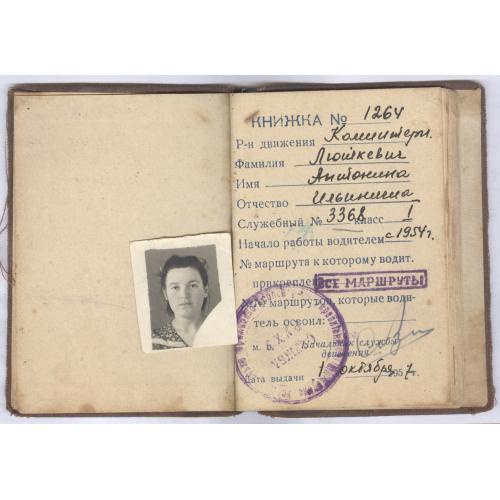 КНИЖКА № 1264
Р-н движения Коминтерн.
Фамилия Люткевич
Имя Антонина
Отчество Ильинична
Служебный № 3368 класс I
Начало работы водителем с 1954 г.
№ маршрута к которому водит.
прикреплен ВСЕ МАРШРУТЫ
№№ маршрутов, которые води-
тель освоил:
СЛУЖБА
м. Б. Начальник службы
движения
Дата выдачи 1 октября 1957 г.